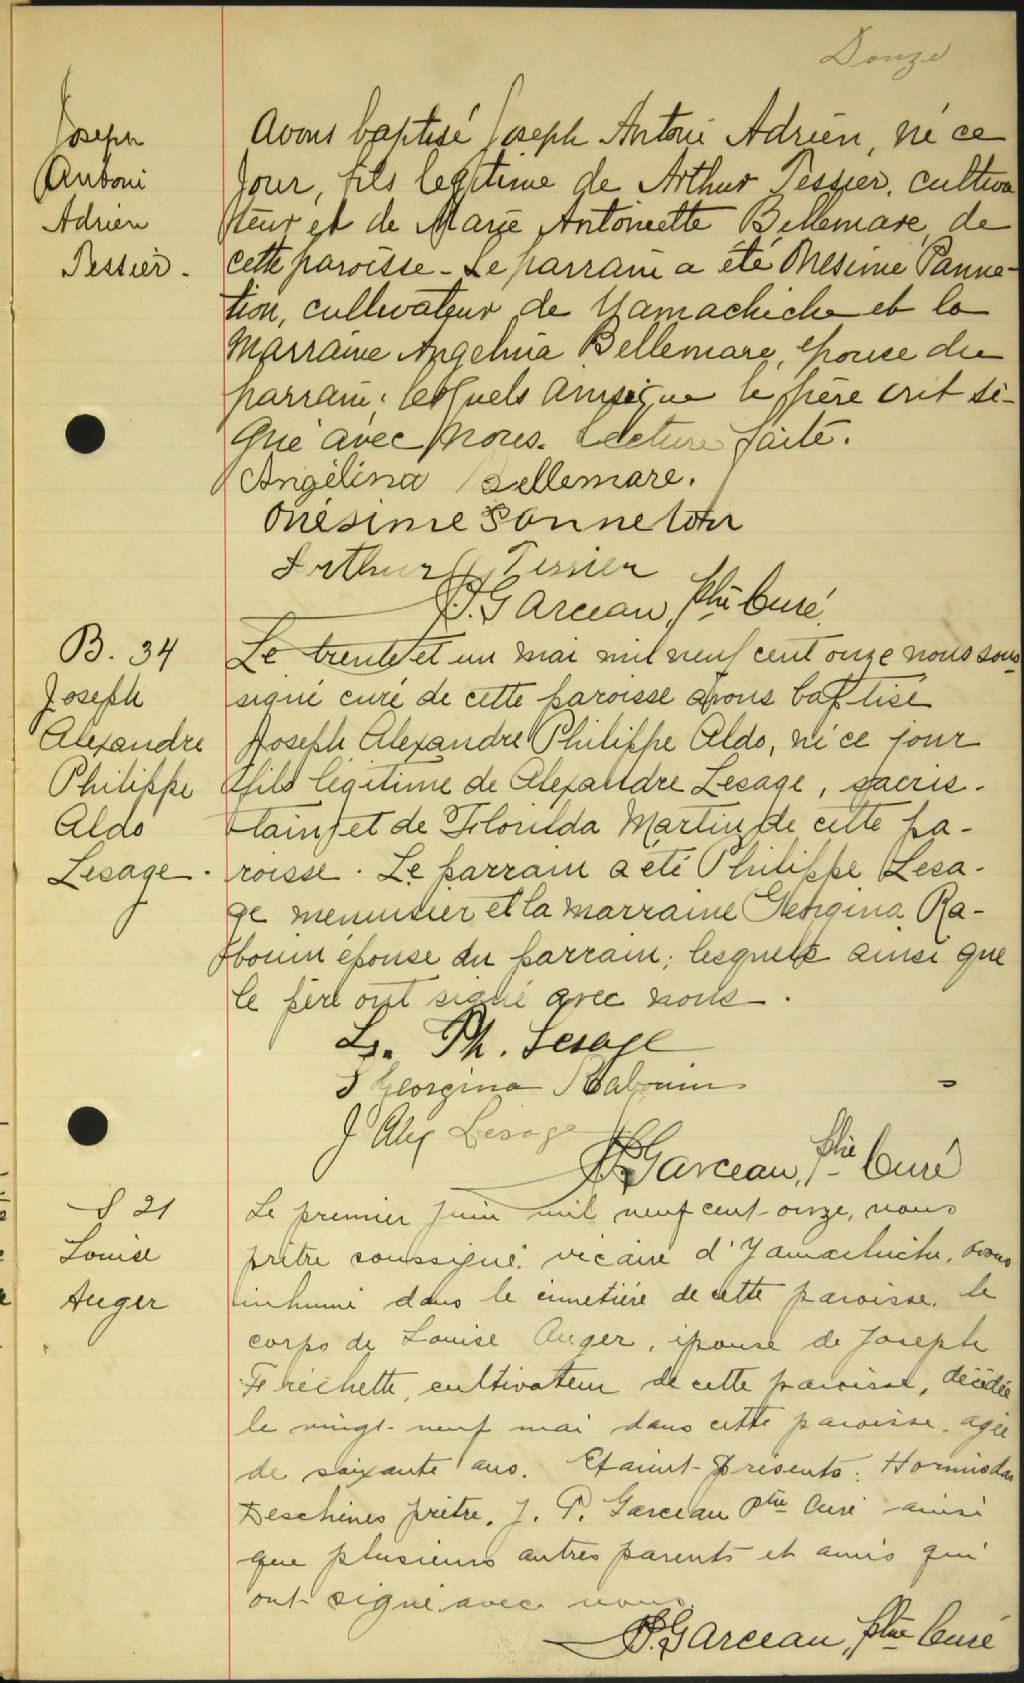 Donze
Joseph
Antoni
Adrien
Tessier.
avons baptisé Joseph Antoni Adrien, né ce
jour, fils legitime de Arthur Tessier, cultiva
teur et de Marie Antoinette Bellemare, de
cette paroisse - Le parrain a été Onesime Panne-
tion, cultivateur de Yamachiche et la
marraine Angelina Bellemare, epouse du
parrain; lesquels ainsi que le père ont si-
gné avec nous. Lecture faite.
Angélina Bellemare.
Onésime Panneton
Arthur Tessier
J.P. Garceau, ptre Curé
B. 34
Joseph
Alexandre
Philippe
Aldo
Lesage.
Le trente et un mai mil neuf cent onze nous sous
signé curé de cette paroisse avons baptisé
Joseph Alexandre Philippe Aldo, né ce jour
fils légitime de Alexandre Lesage, sacris-
tain, et de Florilda Martin de cette pa-
roisse. Le parrain a été Philippe Lesa-
ge menuisier et la marraine Georgina Ra-
bouin épouse du parrain; lesquels ainsi que
le père ont signé avec nous.
L. Ph. Lesage
Georgina Rabouin
J Alex Lesage
J.P. Garceau, ptre Curé
S 21
Louise
Auger
Le premier juin mil neuf cent-onze, nous
prêtre soussigné, vicaire d'Yamachiche, avons
inhumé dans le cimetière de cette paroisse, le
corps de Louise Auger, épouse de Joseph
Fréchette, cultivateur de cette paroisse, décédée
le vingt-neuf mai dans cette paroisse, agée
de soixante ans. Etaient-présents: Hormisdas
Deschènes prêtre, J. P. Garceau Ptre Curé ainsi
que plusieurs autres parents et amis qui
ont signé avec nous.
J.P. Garceau, ptre Curé